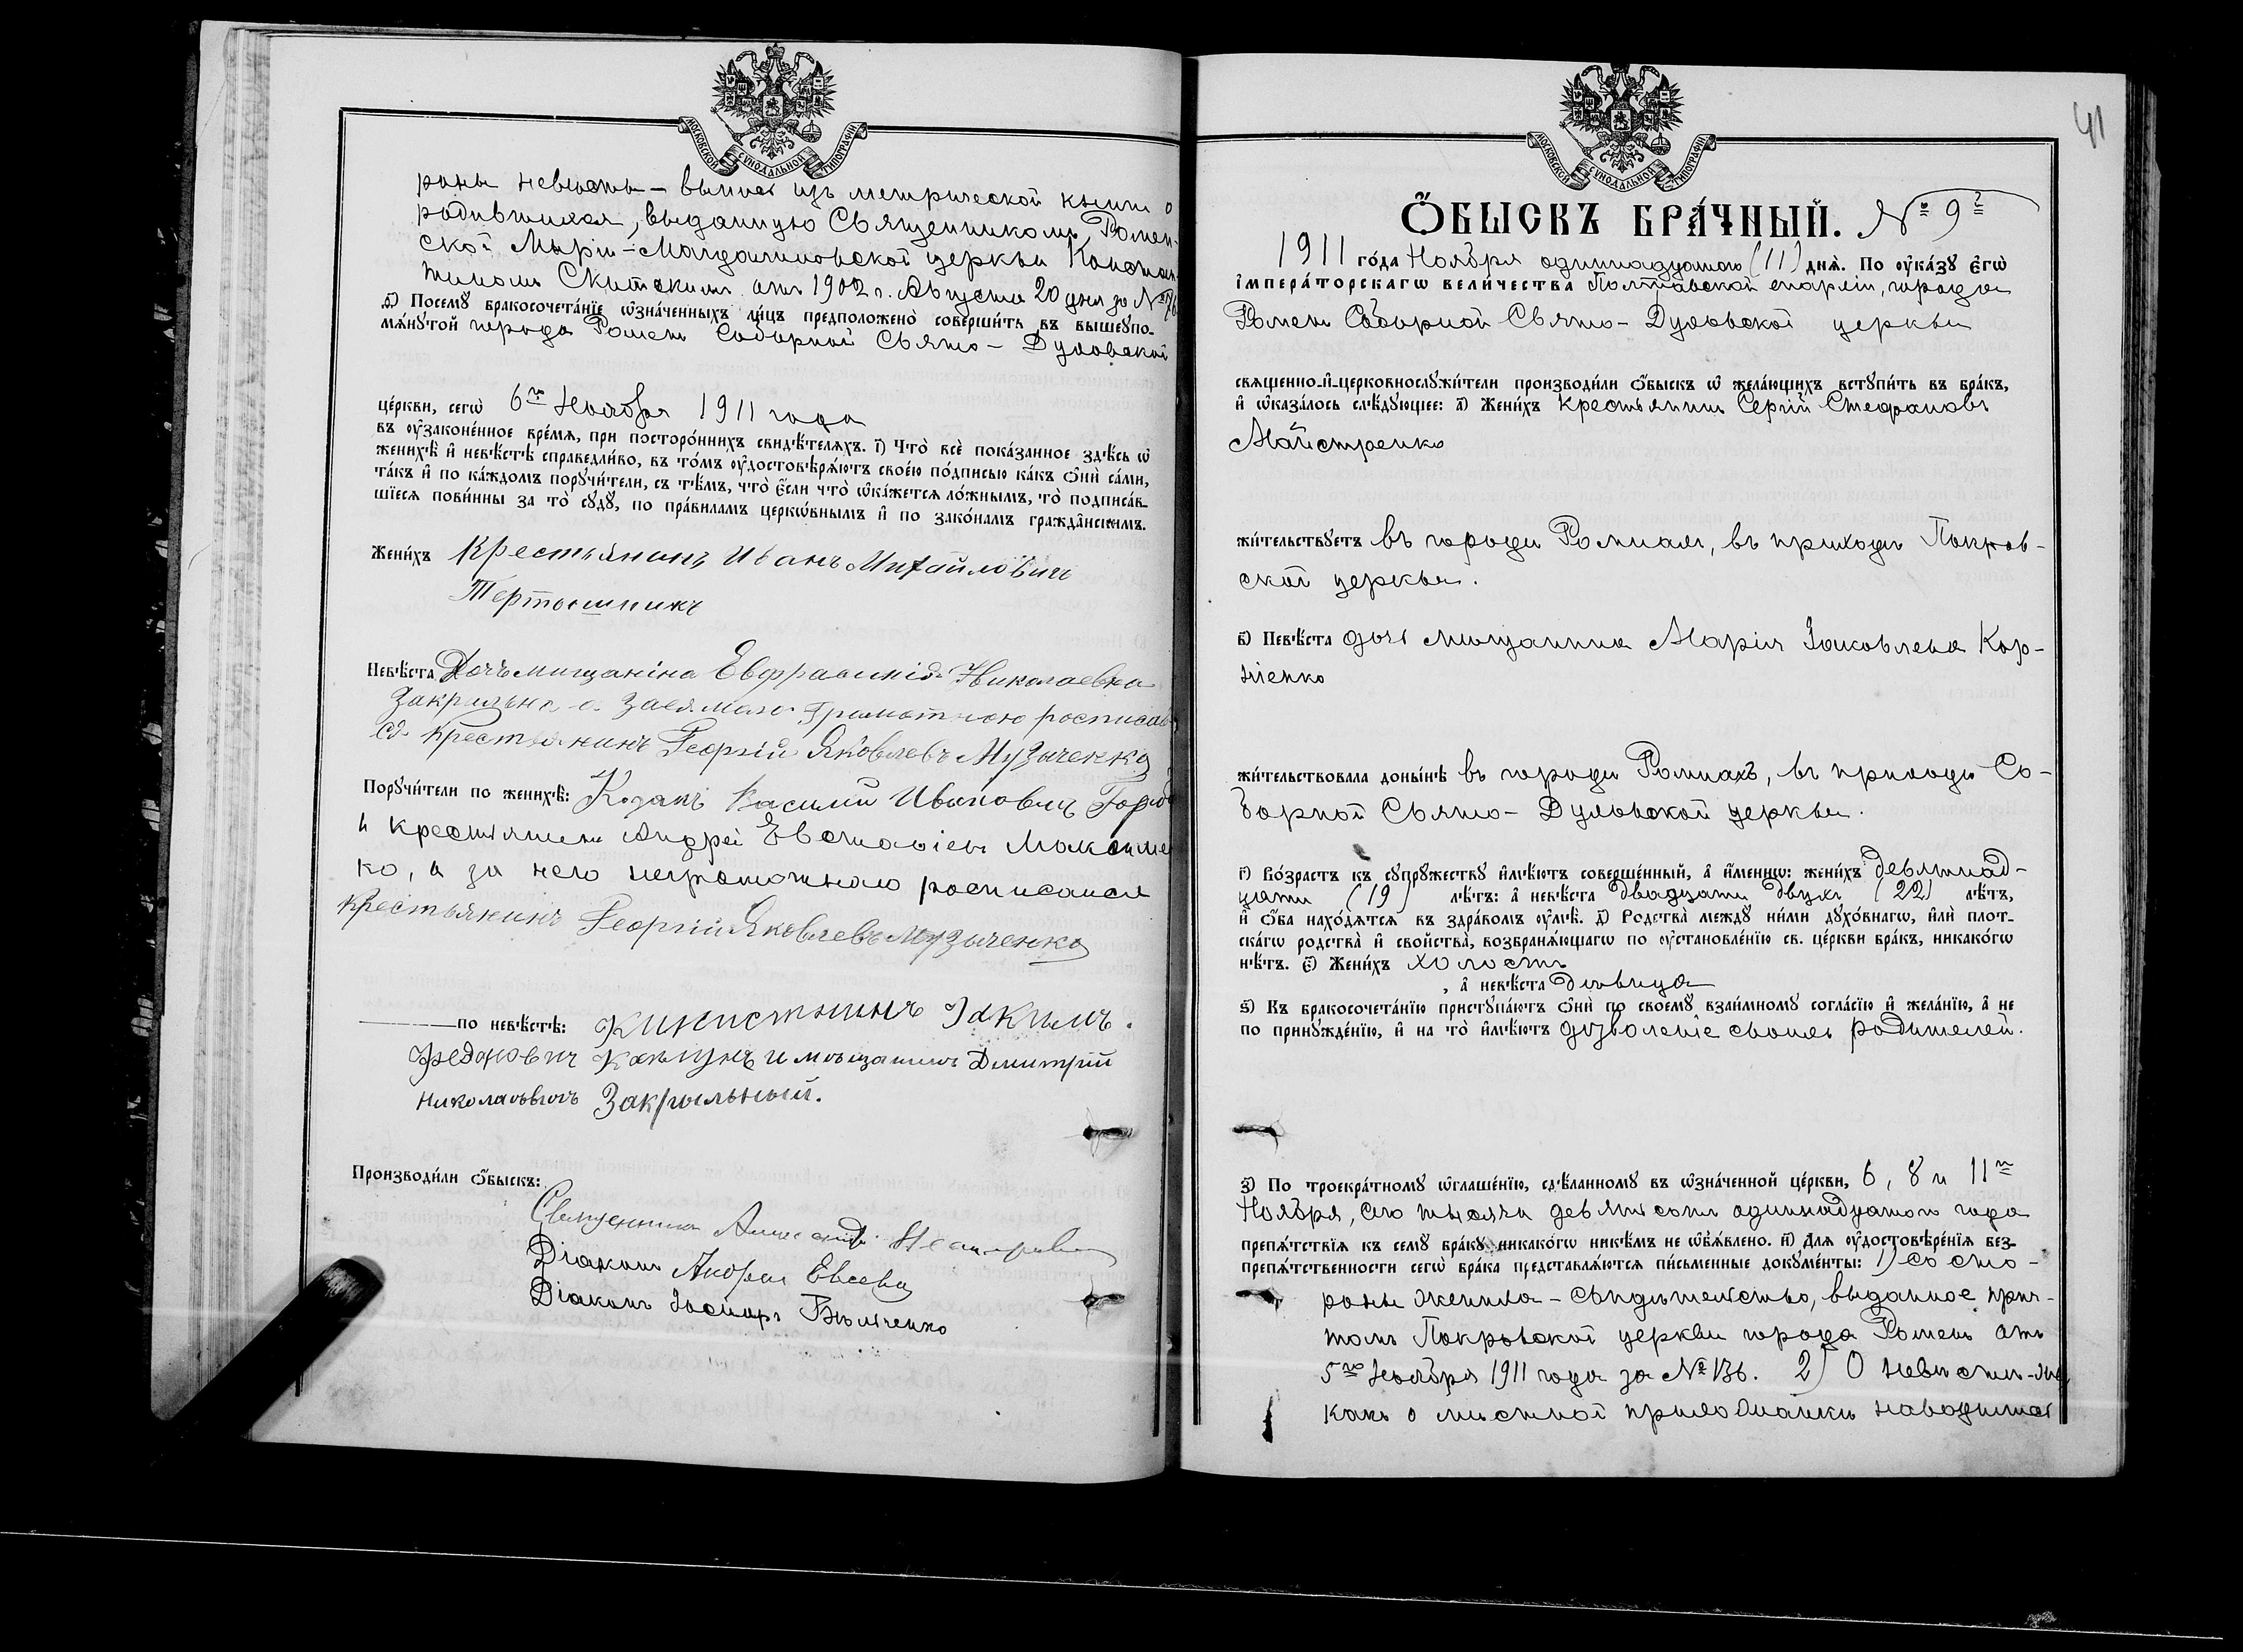 МОСКОВСКОЙ СУНОДАЛЬНОЙ ТИПОГРАФІИ
роны невѣсты – выпись изъ метрической книги о
родившихся, выданную Священникомъ Ромен-
ской Маріи-Магдалиновской церкви Констан-
тиномъ Скитскимъ отъ 1902 г. Августа 20 дня за №
ѳ҃) Посемꙋ бракосочета́нїе ѡ҆зна́ченныхъ ли́цъ предположено̀ соверши́ть въ вышеꙋпо-
мѧ́нꙋтой города Роменъ Соборной Свято-Духовской
це́ркви, сегѡ̀ 6го Ноября 1911 года
въ ᲂу҆законе́нное вре́мѧ, при посторо́ннихъ свидѣ́телѧхъ. і҃) Что̀ всѐ пока́занное здѣ́сь ѡ҆
женихѣ̀ и҆ невѣ́стѣ справедли́во, въ то́мъ ᲂу҆достовѣрѧ́ютъ свое́ю по́дписью ка́къ ѻ҆нѝ са́ми,
та́къ и҆ по ка́ждомъ порꙋчи́тели, съ тѣ́мъ, что̀ є҆́сли что̀ ѡ҆ка́жетсѧ ло́жнымъ, то̀ подписа́в-
шїесѧ пови́нны за то̀ сꙋдꙋ̀, по пра́виламъ церко́внымъ и҆ по зако́намъ гражда́нскимъ.
Жени́хъ Крестьянинъ Иванъ Михайловичъ
Тертышникъ
Невѣ́ста Дочь мищаніна Евфрасинія Николаевна
Закрильна а за ея мало грамотною росписав
ся крестьянинъ Георгій Яковлевъ Музыченко
Порꙋчи́тели по женихѣ̀: Козакъ Василій Ивановичъ
и крестьянинъ Андрей Евстафіевъ Максимен
ко, а за него неграмотнаго росписался
крестьянинъ Георгій Яковлевъ Музыченко
по невѣ́стѣ: Іакимъ
Федоровичъ и мѣщанинъ Дмитрій
Николаевичъ Закрыльный.
Производи́ли ѻ҆́быскъ:
Священникъ Александръ
Діаконъ Андрей Евсевъ
Діаконъ Іосифъ
41
МОСКОВСКОЙ СУНОДАЛЬНОЙ ТИПОГРАФІИ
Ѻ҆́БЫСКЪ БРА́ЧНЫЙ. № 9й
1911 го́да Ноября одиннадцатого (11) днѧ̀. По ᲂу҆ка́зꙋ є҆гѡ̀
і҆мпера́торскагѡ вели́чества Полтавской епархіи, города
Роменъ Соборной Свято-Духовской церкви
свѧщенно-и҆-церковнослꙋжи́тели производи́ли ѻ҆́быскъ ѡ҆ жела́ющихъ встꙋпи́ть въ бра́къ,
и҆ ѡ҆каза́лось слѣ́дꙋющее: а҃) Жени́хъ крестьянинъ Сергій Стефановъ
Майстренко
жи́тельствꙋетъ въ городѣ Ромнахъ, въ приходѣ Покров-
ской церкви.
в҃) Невѣ́ста дочь мѣщанина Марія Іаковлева Кор-
ніенко
жи́тельствовала доны́нѣ въ городѣ Ромнахъ, въ приходѣ Со-
борной Свято-Духовской церкви.
г҃) Во́зрастъ къ сꙋпрꙋ́жествꙋ и҆мѣ́ютъ соверше́нный, а҆ и҆́меннѡ: жени́хъ девятнад-
цати (19) лѣ́тъ: а҆ невѣ́ста двадцати двухъ (22) лѣ́тъ,
и҆ ѻ҆́ба нахо́дѧтсѧ въ здра́вомъ ᲂу҆мѣ̀. д҃) Родства̀ междꙋ ни́ми дꙋхо́внагѡ, и҆лѝ плот-
ска́гѡ родства̀ и҆ свойства̀, возбранѧ́ющагѡ по ᲂу҆становле́нїю св. це́ркви бра́къ, никако́гѡ
нѣ́тъ. є҃) Жени́хъ холостъ
, а҆ невѣ́ста дѣвица
ѕ҃) Къ бракосочета́нїю пристꙋпа́ютъ ѻ҆нѝ по своемꙋ̀ взаи́мномꙋ согла́сїю и҆ жела́нїю, а҆ не
по принꙋжде́нїю, и҆ на то̀ и҆мѣ́ютъ дозволеніе своихъ родителей.
з҃) По троекра́тномꙋ ѡ҆глаше́нїю, сдѣ́ланномꙋ въ ѡ҆зна́ченной це́ркви, 6, 8 и 11го
Ноября, сего тысяча девятьсотъ одиннадцатого года
препѧ́тствїѧ къ семꙋ̀ бра́кꙋ никако́гѡ никѣ́мъ не ѡ҆б̾ѧ́влено. и҃) Длѧ ᲂу҆достовѣре́нїѧ без-
препѧ́тственности сегѡ̀ бра́ка представлѧ́ютсѧ пи́сьменные докꙋме́нты: 1) Со сто-
роны жениха – свидѣтельство, выданное прич-
томъ Покровской церкви города Роменъ отъ
5го Ноября 1911 года за № 136. 2) О невѣстѣ-же
какъ о мѣстной прихожанкѣ наводилась